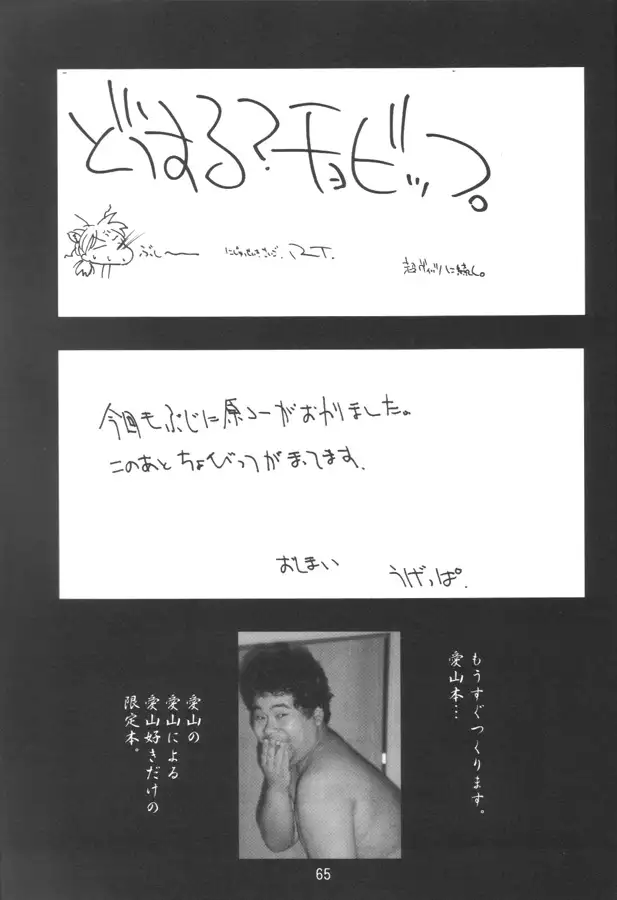 どうする？チョビッツ。
ぷしー
今回もぶじに原コーがおわりました。
このあとちょびっつがまってます。
おしまい
うげっぱ.
もうすぐつくります。
愛山本…
愛山の
愛山による
愛山好きだけの
限定本。
65